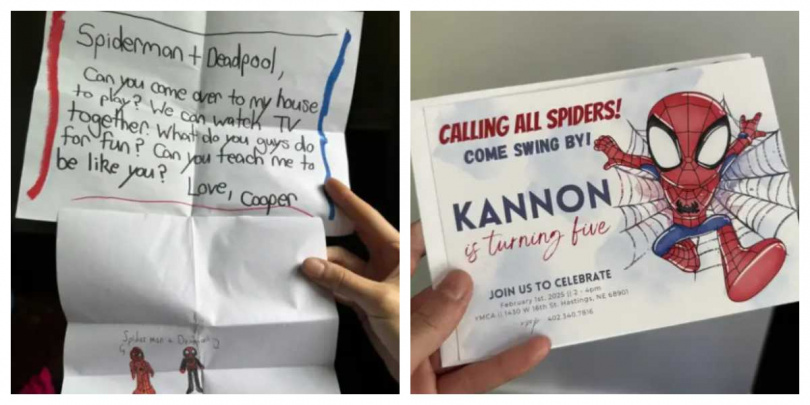 Spiderman + Deadpool,
Can you come over to my house
to play? We can watch TV
together. What do you guys do
for fun? Can you teach me to
be like you?
Love, Cooper
Spider man
CALLING ALL SPIDERS!
COME SWING BY!
KANNON
is turning five
JOIN US TO CELEBRATE
February 1st, 2025 || 2 - 4pm
YMCA || 1430 W 16th St. Hastings, NE 68901
rsvp 402.340.7616